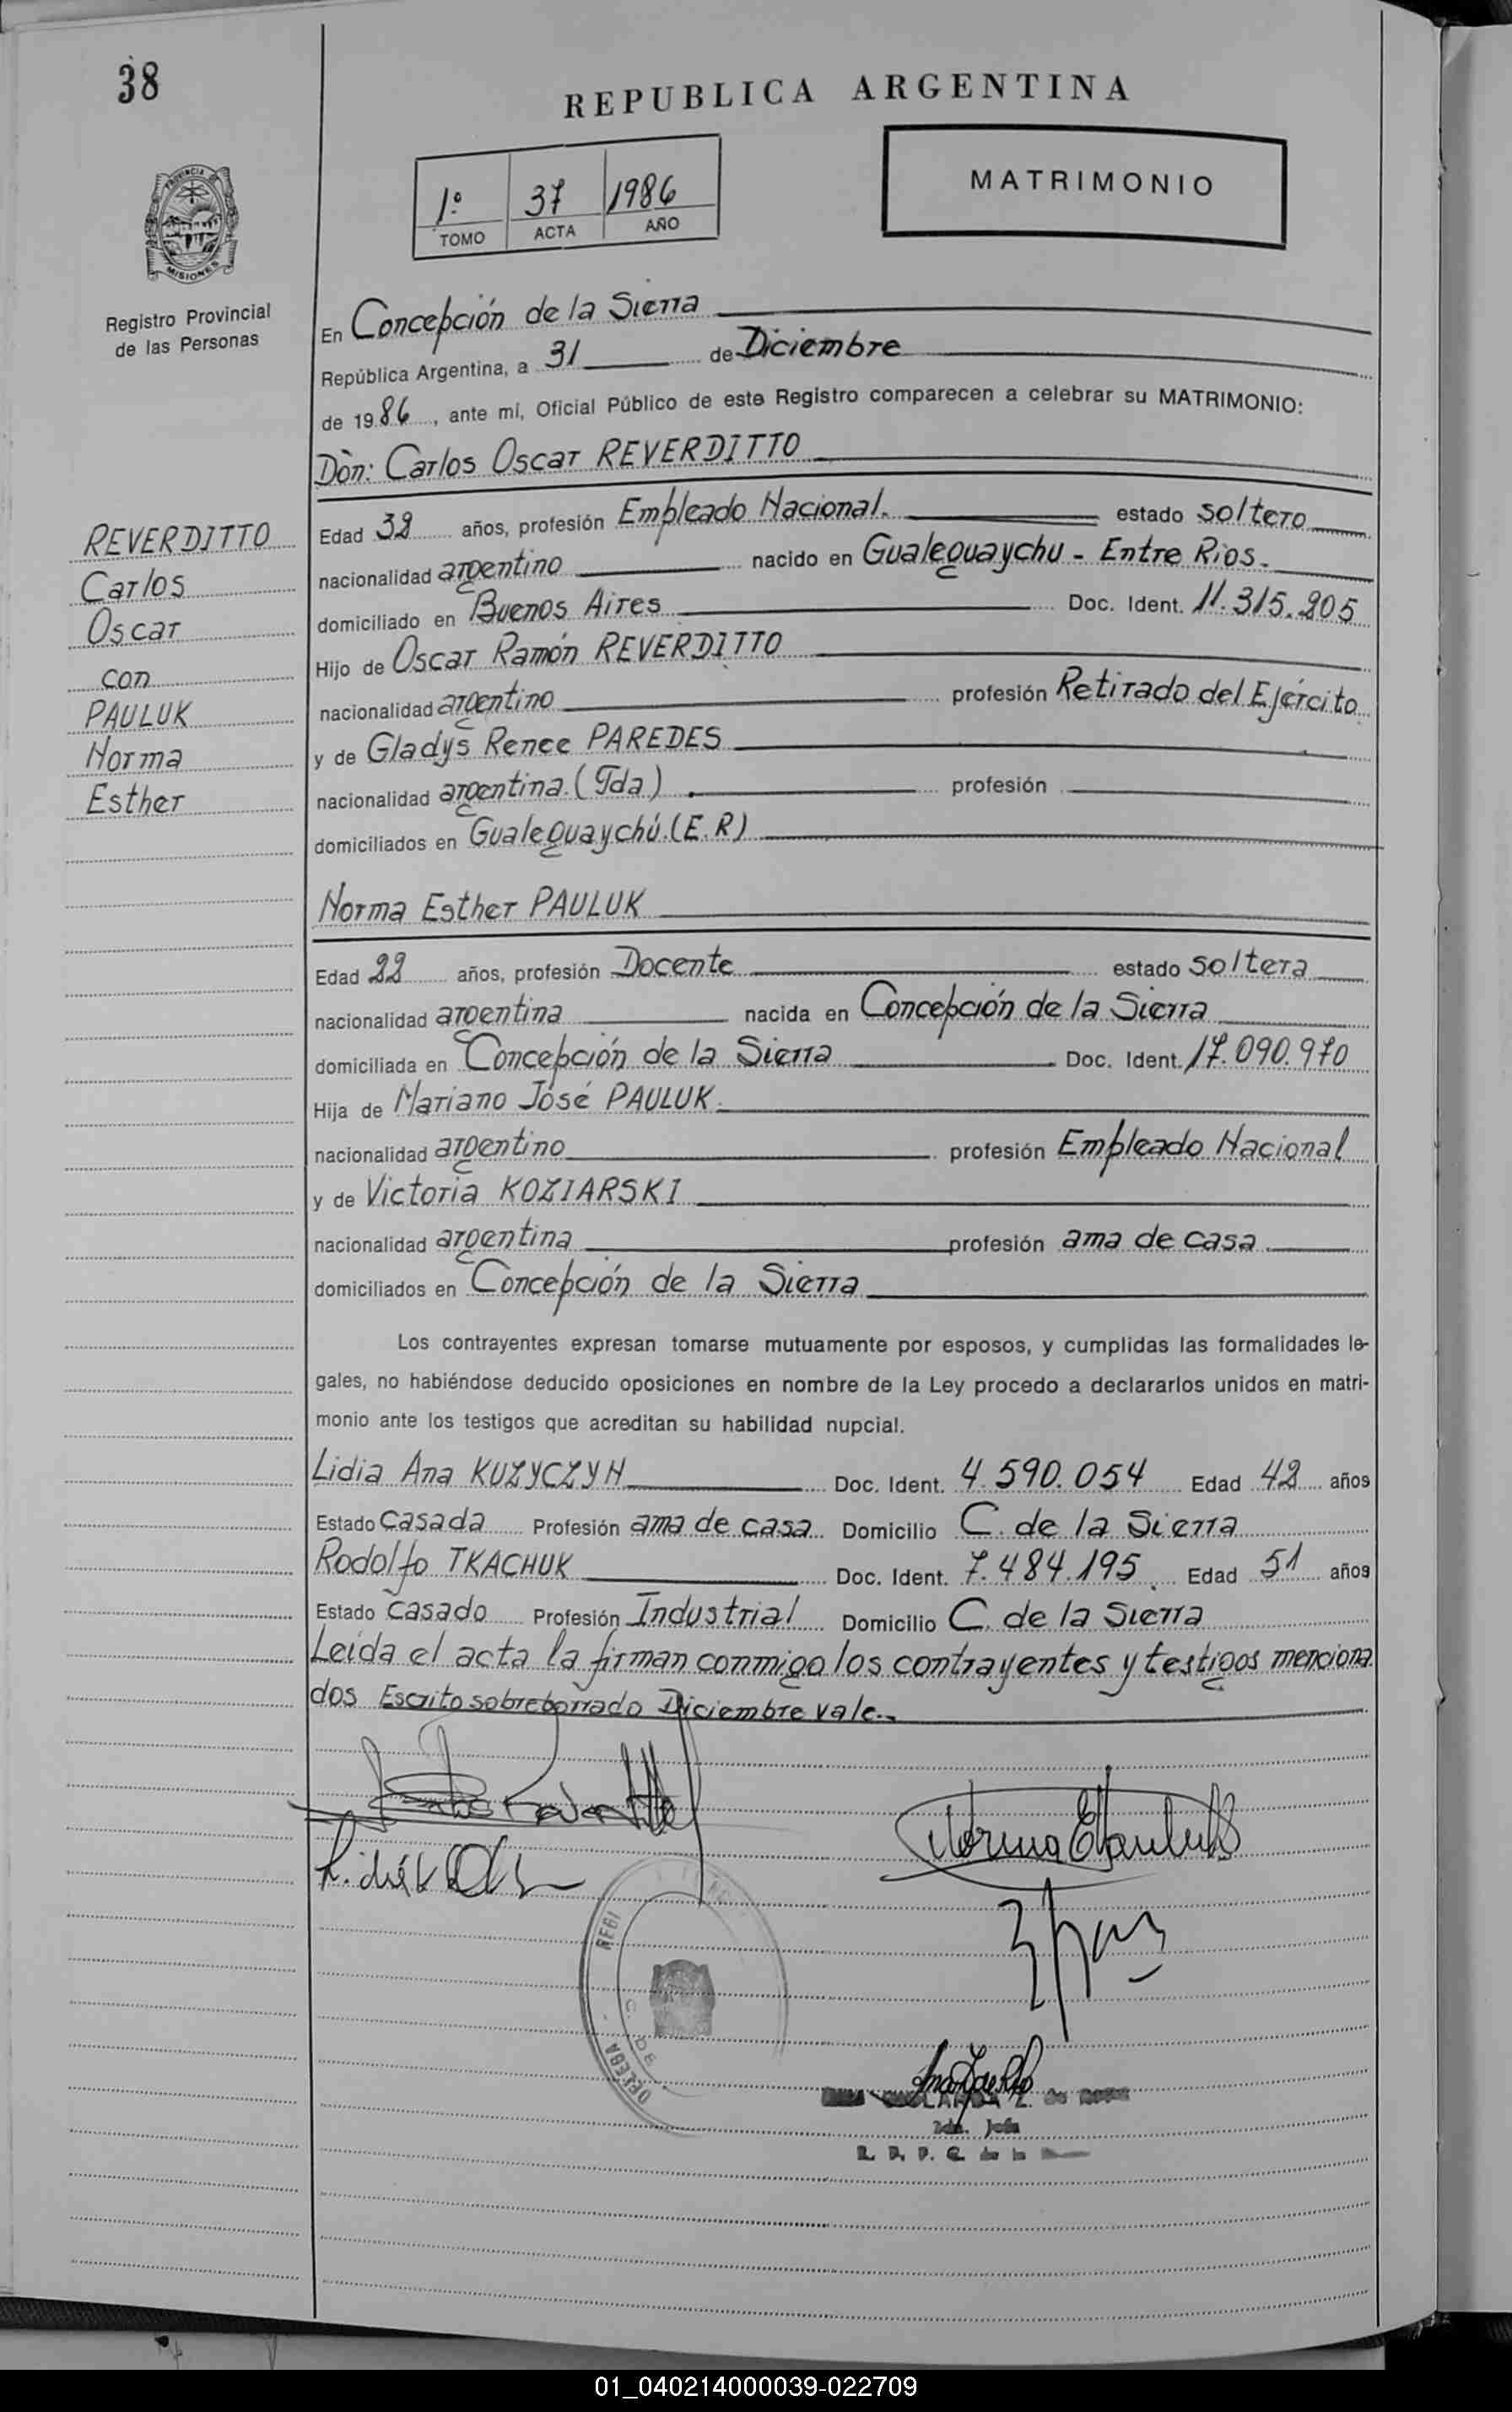 38
REPUBLICA ARGENTINA
1º 37 1986
TOMO ACTA AÑO
MATRIMONIO
PROVINCIA
MISIONES
Registro Provincial
de las Personas
En Concepción de la Sierra
República Argentina, a 31 de Diciembre
de 1986, ante mí, Oficial Público de este Registro comparecen a celebrar su MATRIMONIO:
Dòn: Carlos Oscar REVERDITTO
REVERDITTO
Carlos
Oscar
con
PAULUK
Norma
Esther
Edad 32 años, profesión Empleado Nacional. estado soltero
nacionalidad argentino nacido en Gualeguaychu - Entre Rios.
domiciliado en Buenos Aires Doc. Ident. 11.315.205
Hijo de Oscar Ramón REVERDITTO
nacionalidad argentino profesión Retirado del Ejército
y de Gladys Renee PAREDES
nacionalidad argentina. (Fda) profesión
domiciliados en Gualeguaychú. (E.R)
Norma Esther PAULUK
Edad 22 años, profesión Docente estado soltera
nacionalidad argentina nacida en Concepción de la Sierra
domiciliada en Concepción de la Sierra Doc. Ident. 17.090.970
Hija de Mariano José PAULUK.
nacionalidad argentino profesión Empleado Nacional
y de Victoria KOZIARSKI
nacionalidad argentina profesión ama de casa
domiciliados en Concepción de la Sierra
Los contrayentes expresan tomarse mutuamente por esposos, y cumplidas las formalidades le-
gales, no habiéndose deducido oposiciones en nombre de la Ley procedo a declararlos unidos en matri-
monio ante los testigos que acreditan su habilidad nupcial.
Lidia Ana KUZYCZYN Doc. Ident. 4.590.054 Edad 42 años
Estado casada Profesión ama de casa Domicilio C. de la Sierra
Rodolfo TKACHUK Doc. Ident. 7.484.195 Edad 51 años
Estado casado Profesión Industrial Domicilio C. de la Sierra
Leida el acta la firman conmigo los contrayentes y testigos menciona
dos Escrito sobreborrado Diciembre vale.-
Norma E Pauluk
REGI
Z. de
Jefa
R. P. P. C. de la
01_040214000039-022709